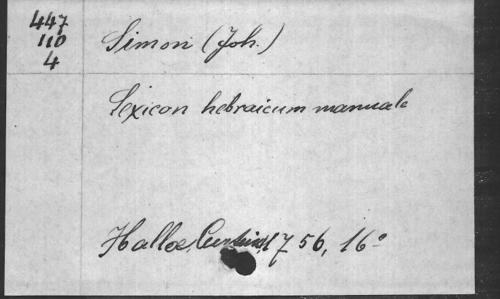 447
110
4
Simon (Joh.)
Lexicon hebraicum manuale
Hallae, 1756, 16°